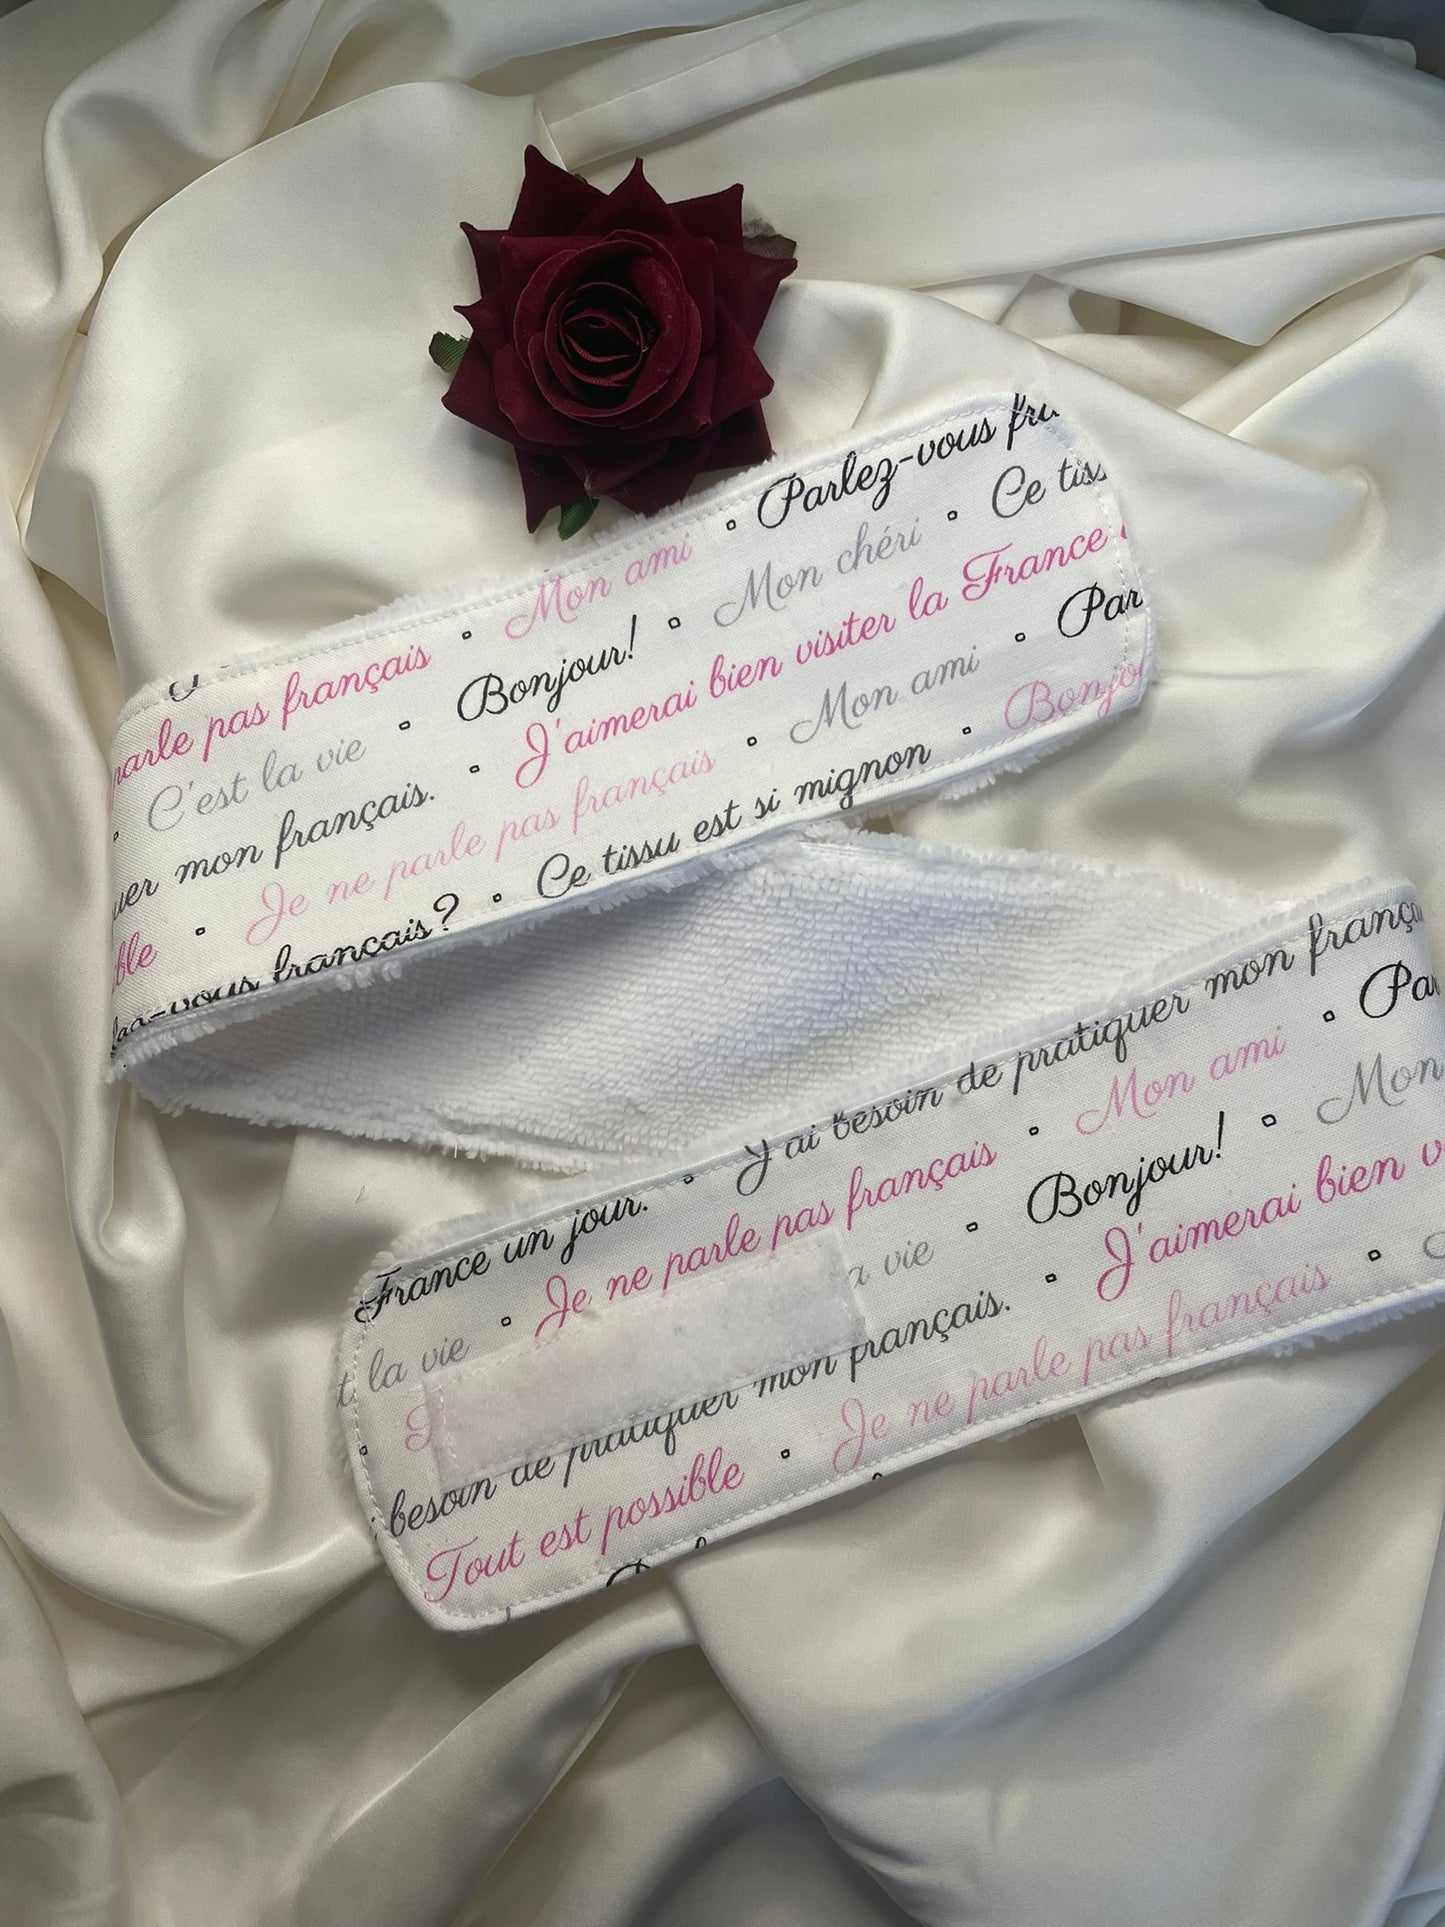 Parlez-vous
Mon ami Ce
parle pas français Mon chéri
Bonjour! J'aimerai bien visiter la France
C'est la vie Par
mon français. Mon ami
Je ne parle pas français Bonjo
Ce tissu est si mignon
vous français?
France un jour. J'ai besoin de pratiquer mon
Je ne parle pas français Mon ami Pa
la vie a vie Bonjour! Mon
besoin de pratiquer mon français. J'aimerai bien v
Tout est possible Je ne parle pas français